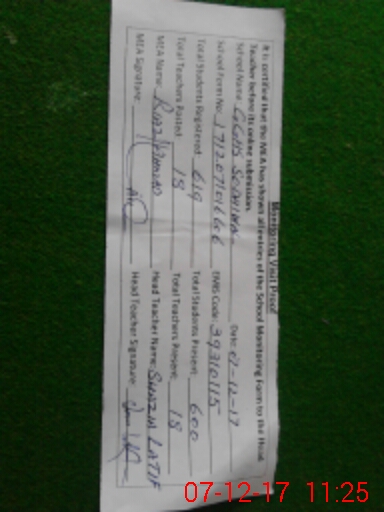 Monitoring Visit Proof
It is certified that the MEA has shown all entries of the School Monitoring Form to the Head
Teacher before its online submission.
School Name: GGHS Date: 07-12-17
School Form No: EMIS Code: 39310115
Total Students Registered: 619 Total Students Present: 600
Total Teachers Posted: 18 Total Teachers Present: 18
MEA Name: Head Teacher Name: SHAZIA LATIF
MEA Signature: Head Teacher Signature:
07-12-17 11:25